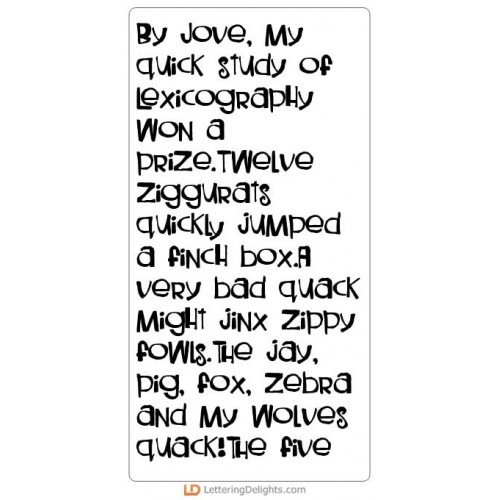 By Jove, My
quick study of
Lexicography
won a
prize.Twelve
ziggurats
quickly jumped
a finch box.A
very bad quack
might jinx zippy
fowls.The jay,
pig, fox, zebra
and my wolves
quack!The five
LD LetteringDelights.com